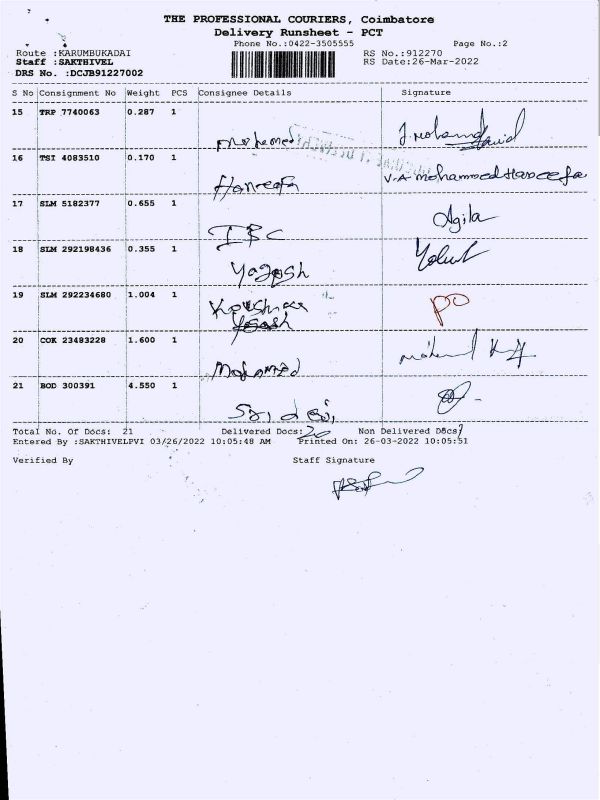 THE PROFESSIONAL COURIERS, Coimbatore
Delivery Runsheet - PCT
Phone No.:0422-3505555 Page No.:2
Route :KARUMBUKADAI RS No.:912270
Staff :SAKTHIVEL RS Date:26-Mar-2022
DRS No. :DCJB91227002
S No Consignment No Weight PCS Consignee Details Signature
15 TRP 7740063 0.287 1
mohamed J. Mohamed
16 TSI 4083510 0.170 1
Haneefa V.A mohammed Haneefa
17 SLM 5182377 0.655 1
IBC Agila
18 SLM 292198436 0.355 1
Yagesh
19 SLM 292234680 1.004 1
PO
20 COK 23483228 1.600 1
Mohamed
21 BOD 300391 4.550 1
Total No. Of Docs: 21 Delivered Docs: 20 Non Delivered Docs 1
Entered By :SAKTHIVELPVI 03/26/2022 10:05:48 AM Printed On: 26-03-2022 10:05:51
Verified By Staff Signature